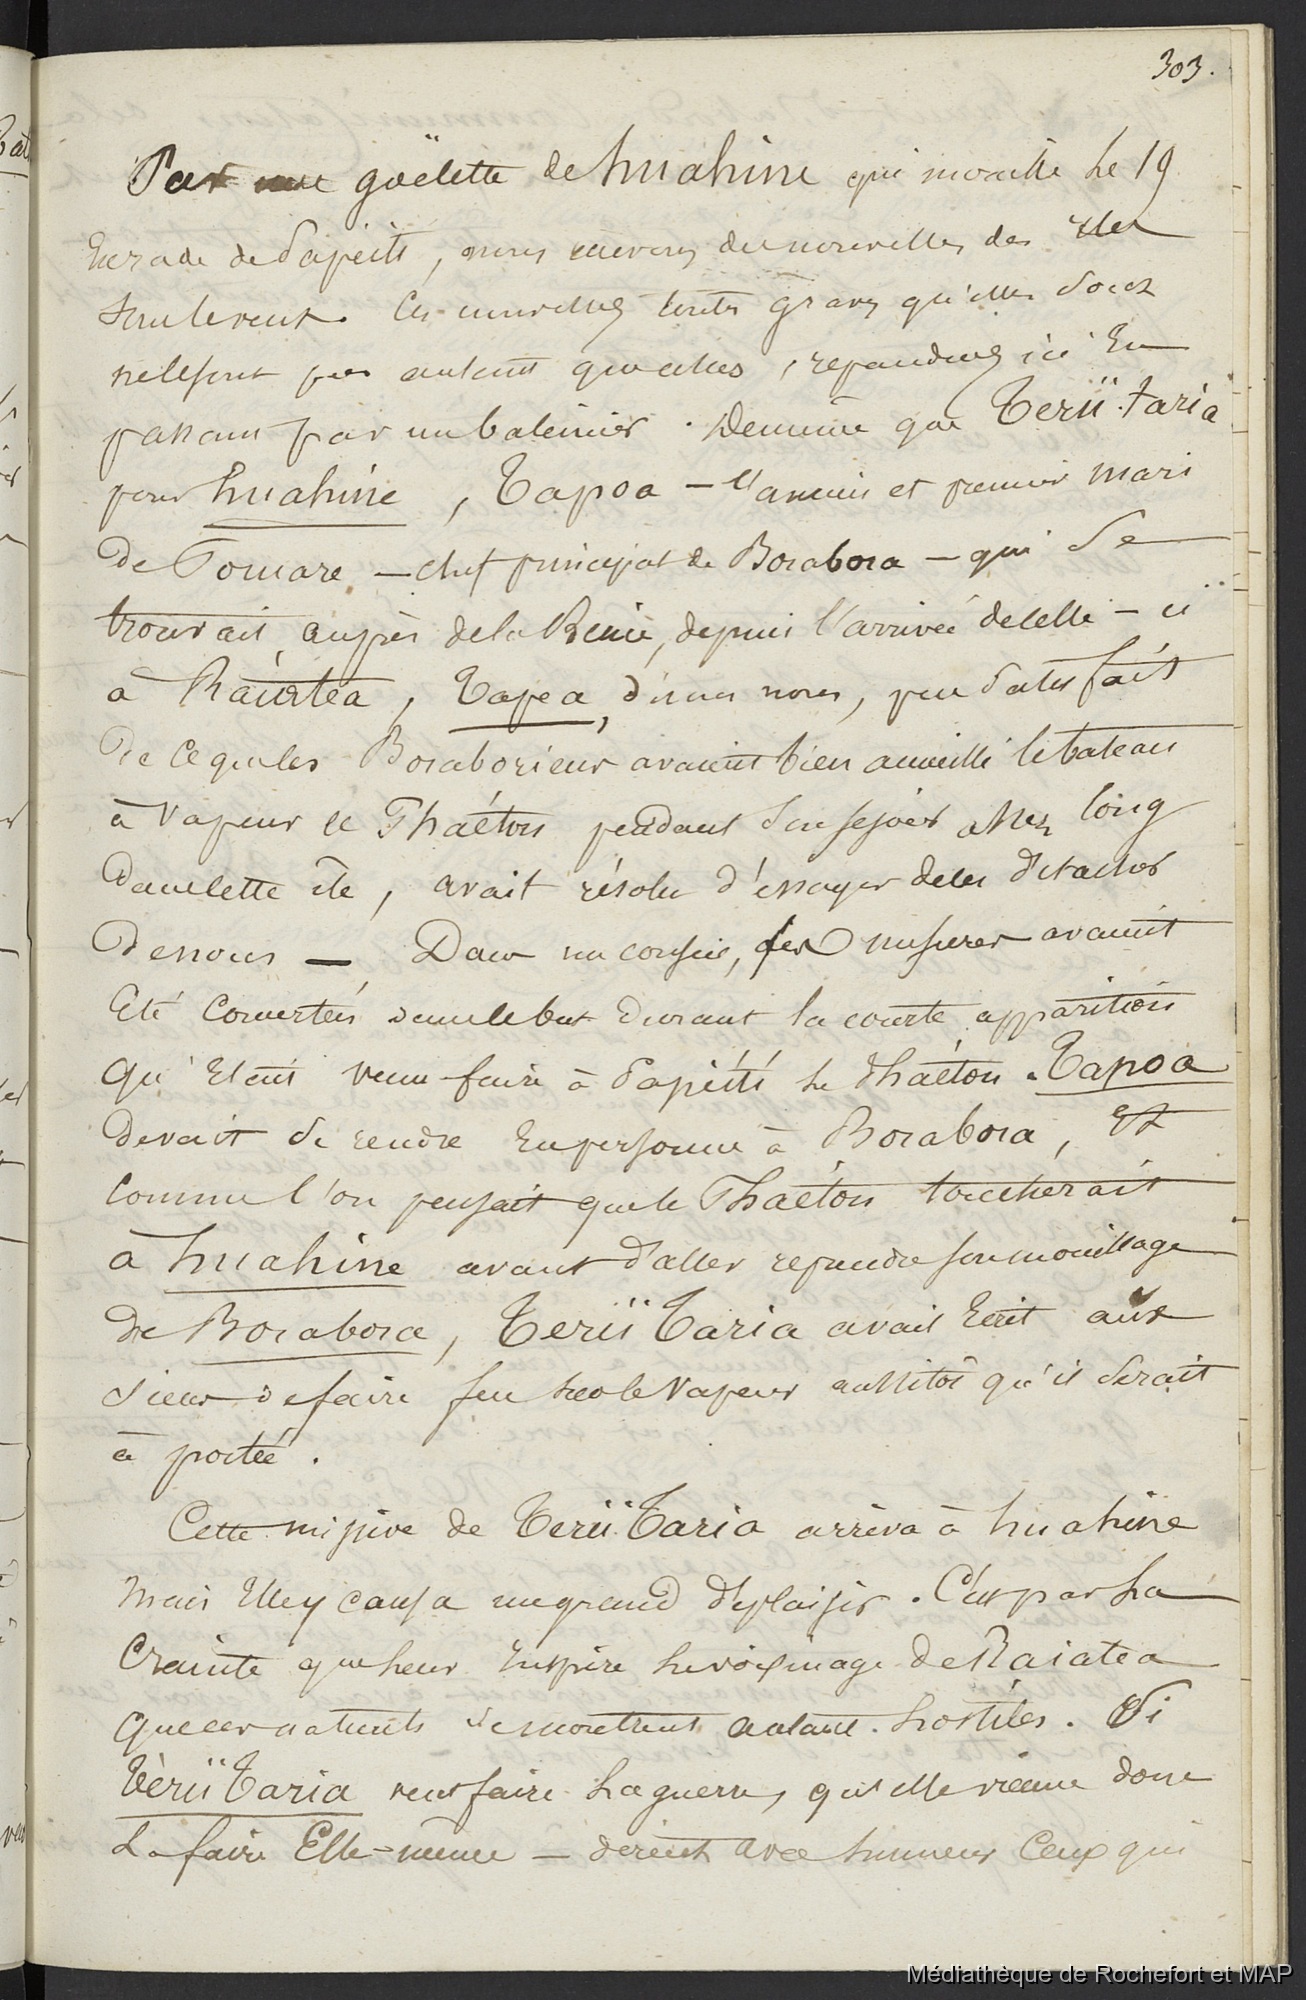 303.
Par une goëlette de huahine qui mouille le 19
En rade de Papeiti, nous recevons des nouvelles des Iles
Sous le vent. Ces nouvelles toutes graves qu'elles sont
ne le sont pas autant que celles, répandues ici En
passant par un baleinier. De même que Terii-taria
pour huahine, Tapoa – l'ancien et premier mari
De Pomare – chef principal de Borabora – qui Se
trouvait auprès de la Reine, depuis l'arrivée de celle-ci
à Raiatea, Tapoa, disons nous, peu Satisfait
De ce que les Boraboriens avaient bien accueilli le bateau
à Vapeur le Phaéton pendant Son séjour assez long
Dans cette île, avait résolu d'essayer de les détacher
De nous – Dans un conseil, des mesures avaient
Eté Concertées dans le but durant la courte apparition
qu'Etait venu faire à Papéiti le Phaéton. Tapoa
Devait Se rendre En personne à Borabora, Et
Comme l'on pensait que le Phaéton toucherait
à huahine avant d'aller reprendre son mouillage
De Borabora, Terii Taria avait Ecrit aux
Siens de faire feu sur le Vapeur aussitôt qu'il Serait
à portée.
Cette missive de Terii Taria arriva à huahine
Mais Elle y causa un grand déplaisir. C'est par la
Crainte que leur inspire le voisinage de Raiatea
que ces naturels se montrent autant hostiles. Si
Térii Taria veut faire la guerre, qu'elle vienne donc
la faire Elle-même – dirent avec humeur Ceux qui
Médiathèque de Rochefort et MAP